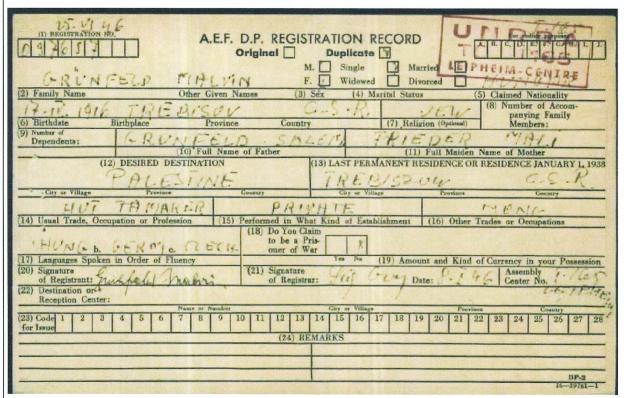 25.VI.46
(1) REGISTRATION NO.
A.E.F. D.P. REGISTRATION RECORD
Original Duplicate
UNRRA
A. B. C. D. E. F. G. H. I. J.
M. Single Married
LEIPHEIM-CENTRE
F. Widowed Divorced
GRÜNFELD MALVIN
(2) Family Name Other Given Names (3) Sex (4) Marital Status (5) Claimed Nationality
17.IV. 1916 TREBISOV C.S.R. JEW
(8) Number of Accompanying Family Members:
(6) Birthdate Birthplace Province Country (7) Religion (Optional)
(9) Number of Dependents:
GRUNFELD SALEM FRIEDER MALI
(10) Full Name of Father (11) Full Maiden Name of Mother
(12) DESIRED DESTINATION (13) LAST PERMANENT RESIDENCE OR RESIDENCE JANUARY 1, 1938
PALESTINE TREBISZOW C.S.R
City or Village Province Country City or Village Province Country
PRIVATE
(14) Usual Trade, Occupation or Profession (15) Performed in What Kind of Establishment (16) Other Trades or Occupations
(18) Do You Claim to be a Prisoner of War
HUNG b. GERM c.
Yes No
(17) Languages Spoken in Order of Fluency (19) Amount and Kind of Currency in your Possession
(20) Signature of Registrant: (21) Signature of Registrar: Date: Assembly Center No.
(22) Destination or Reception Center:
Name or Number City or Village Province Country
(23) Code for Issue 1 2 3 4 5 6 7 8 9 10 11 12 13 14 15 16 17 18 19 20 21 22 23 24 25 26 27 28
(24) REMARKS
DP-2
16-39761-1